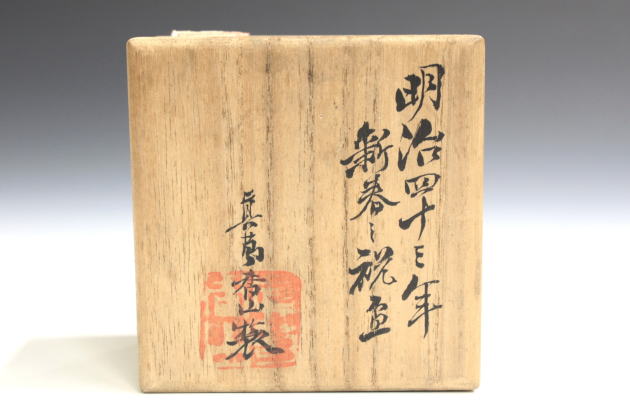 明治四十三年
新春之祝盃
真葛香山製